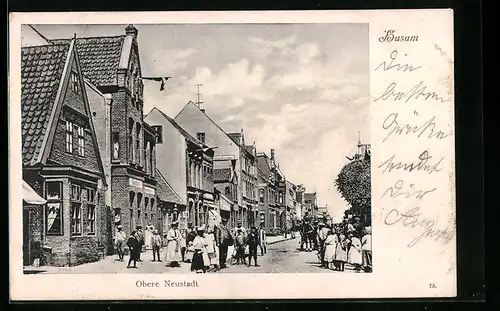 Husum
Die
besten
Grüße
sendet
Dir
Obere Neustadt
75.